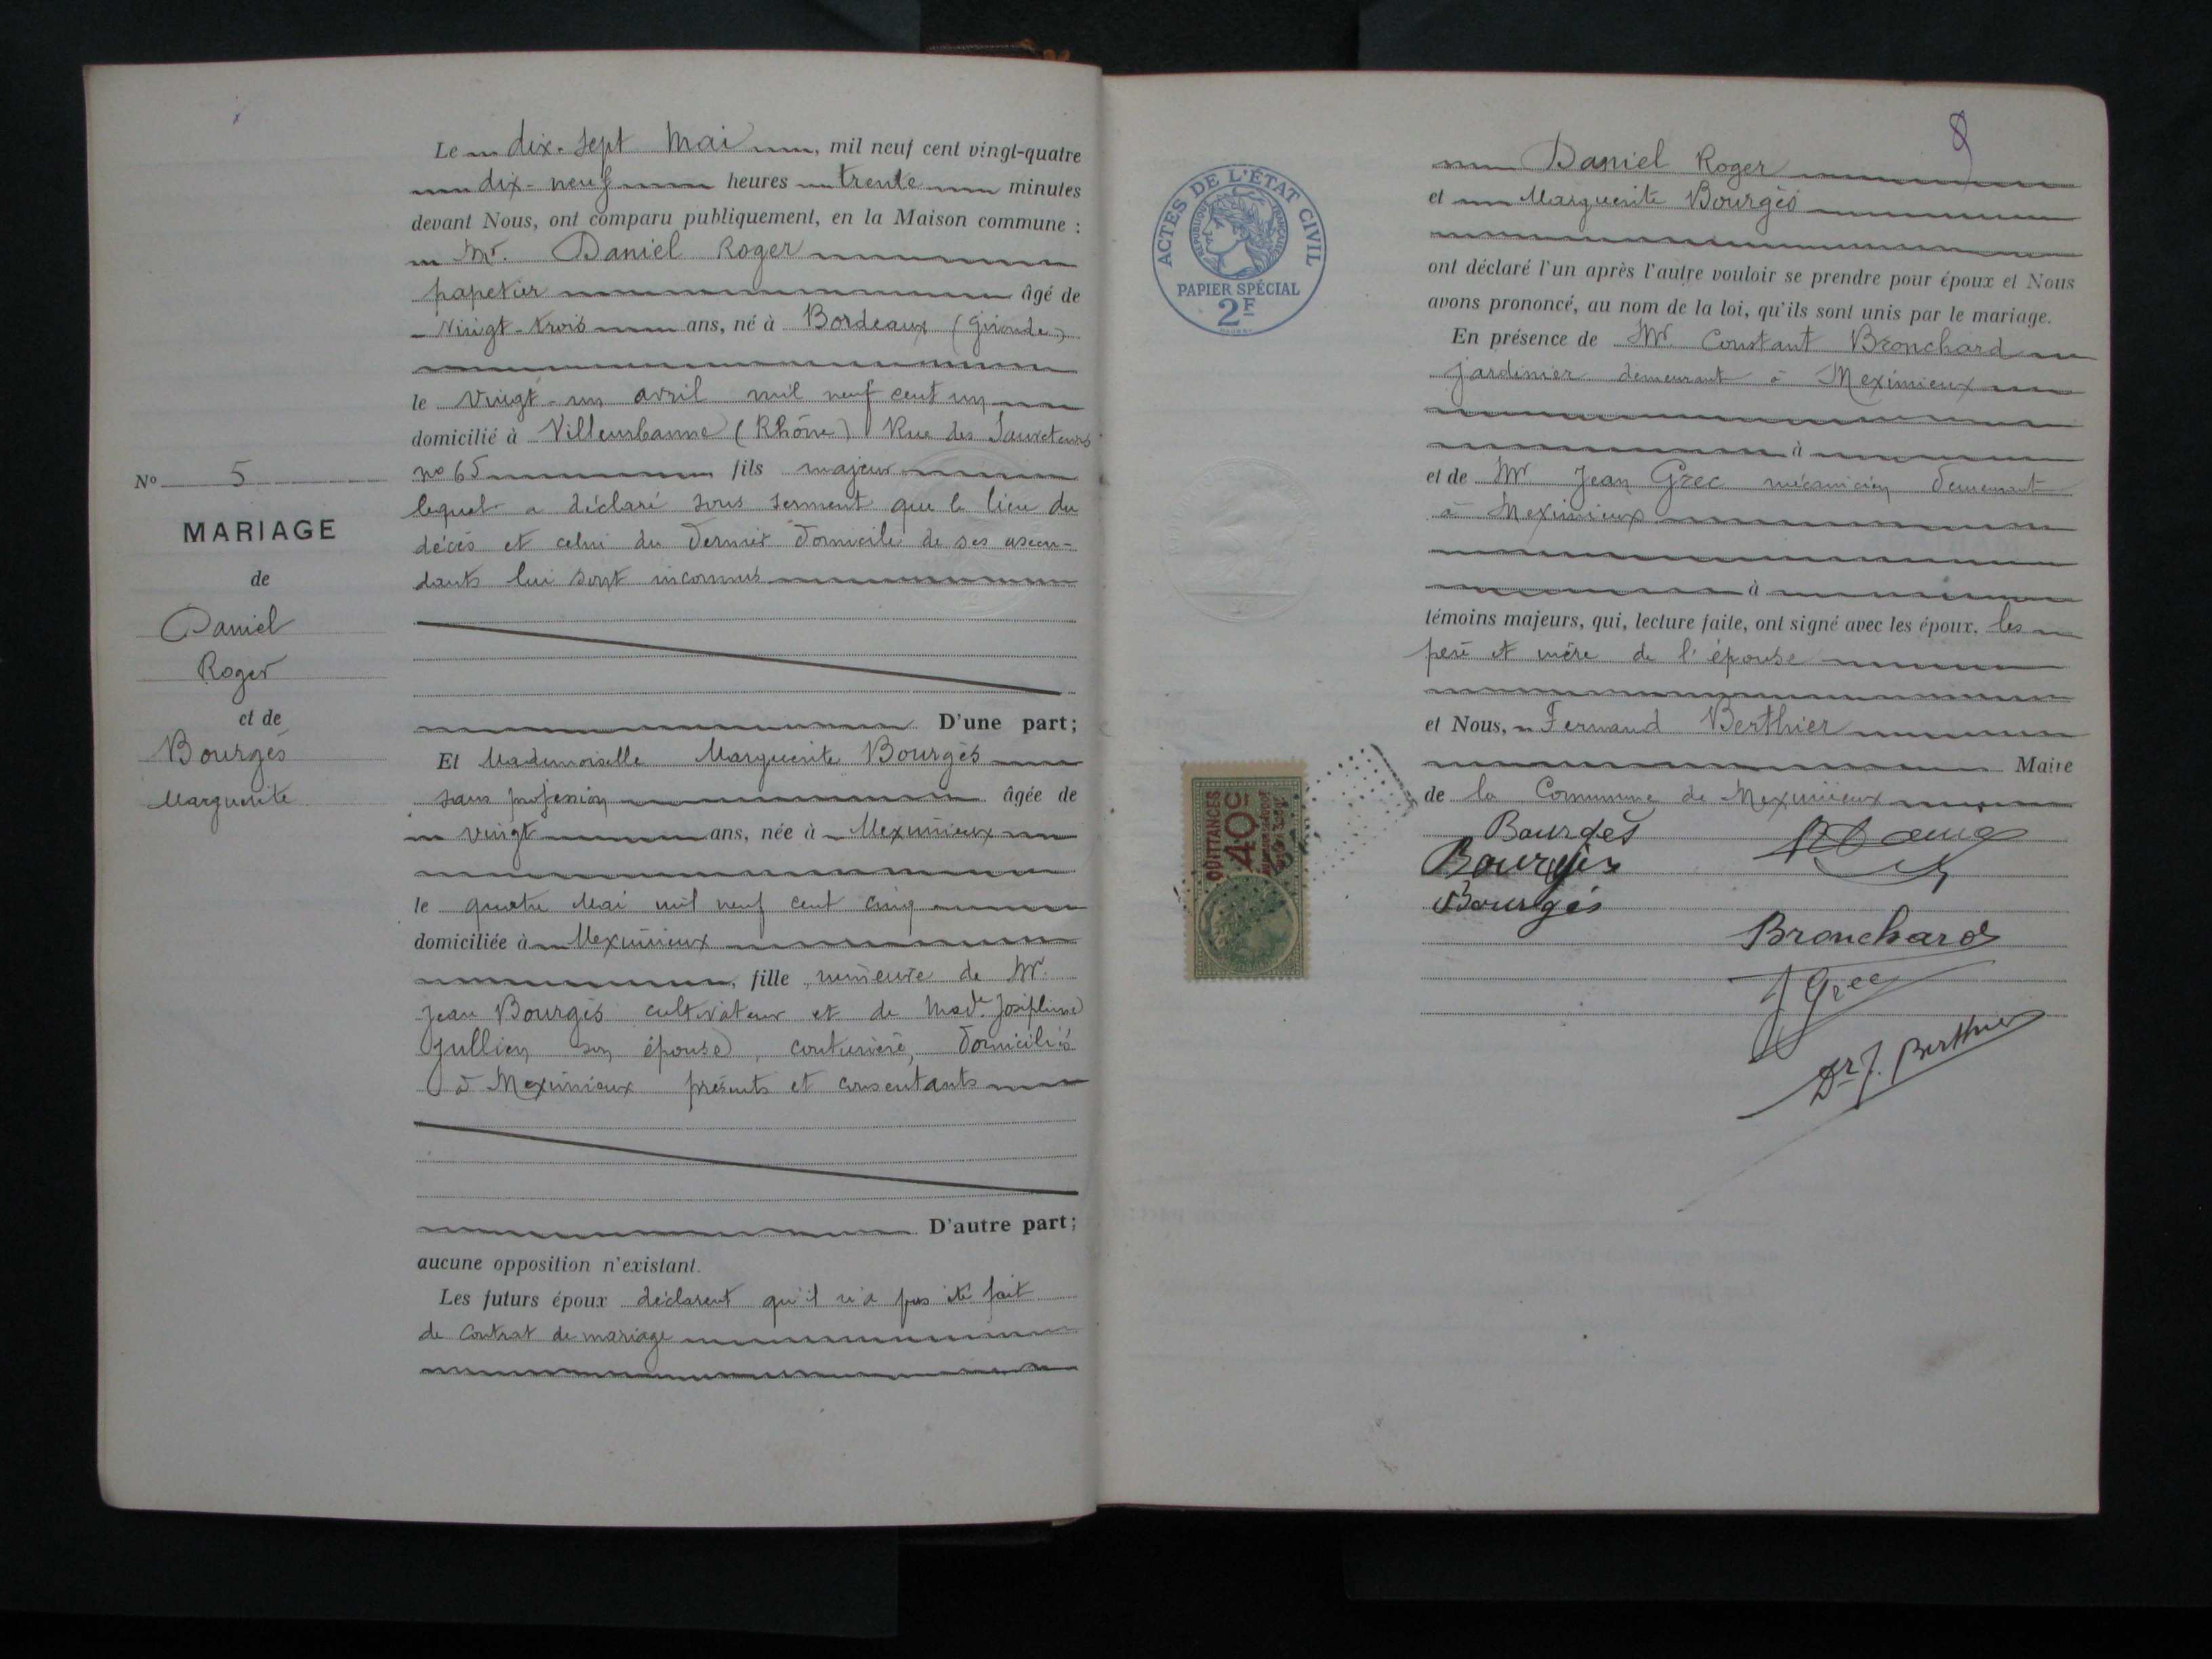 Le dix-sept Mai, mil neuf cent vingt-quatre
dix-neuf heures trente minutes
devant Nous, ont comparu publiquement, en la Maison commune :
Mr. Daniel Roger
papetier âgé de
Vingt-trois ans, né à Bordeaux (Gironde)
le vingt-un avril mil neuf cent un
domicilié à Villeurbanne (Rhône) Rue des Sauveteurs
no 65 fils majeur
lequel a déclaré sous serment que le lieu du
décès et celui du dernier domicile de ses ascen-
dants lui sont inconnus
D'une part;
Et Mademoiselle Marguerite Bourgès
sans profession âgée de
vingt ans, née à Meximieux
le quatre Mai mil neuf cent cinq
domiciliée à Meximieux
, fille mineure de Mr.
Jean Bourgès cultivateur et de Made. Joséphine
Jullien son épouse, couturière, domiciliés
à Meximieux présents et consentants
D'autre part;
aucune opposition n'existant.
Les futurs époux déclarent qu'il n'a pas été fait
de contrat de mariage
No 5
MARIAGE
de
Daniel
Roger
et de
Bourgès
Marguerite
ACTES DE L'ÉTAT CIVIL
RÉPUBLIQUE FRANÇAISE
PAPIER SPÉCIAL
2F
QUITTANCES
40c
8
Daniel Roger
et Marguerite Bourgès
ont déclaré l'un après l'autre vouloir se prendre pour époux et Nous
avons prononcé, au nom de la loi, qu'ils sont unis par le mariage.
En présence de Mr Constant Bronchard
jardinier demeurant à Meximieux
à
et de Mr Jean Grec mécanicien demeurant
à Meximieux
à
témoins majeurs, qui, lecture faite, ont signé avec les époux. les
père et mère de l'épouse
et Nous, Fernand Berthier
Maire
de la Commune de Meximieux
Bourgès
Bourgès
Bourgès
Bronchard
J Grec
Dr F. Berthier